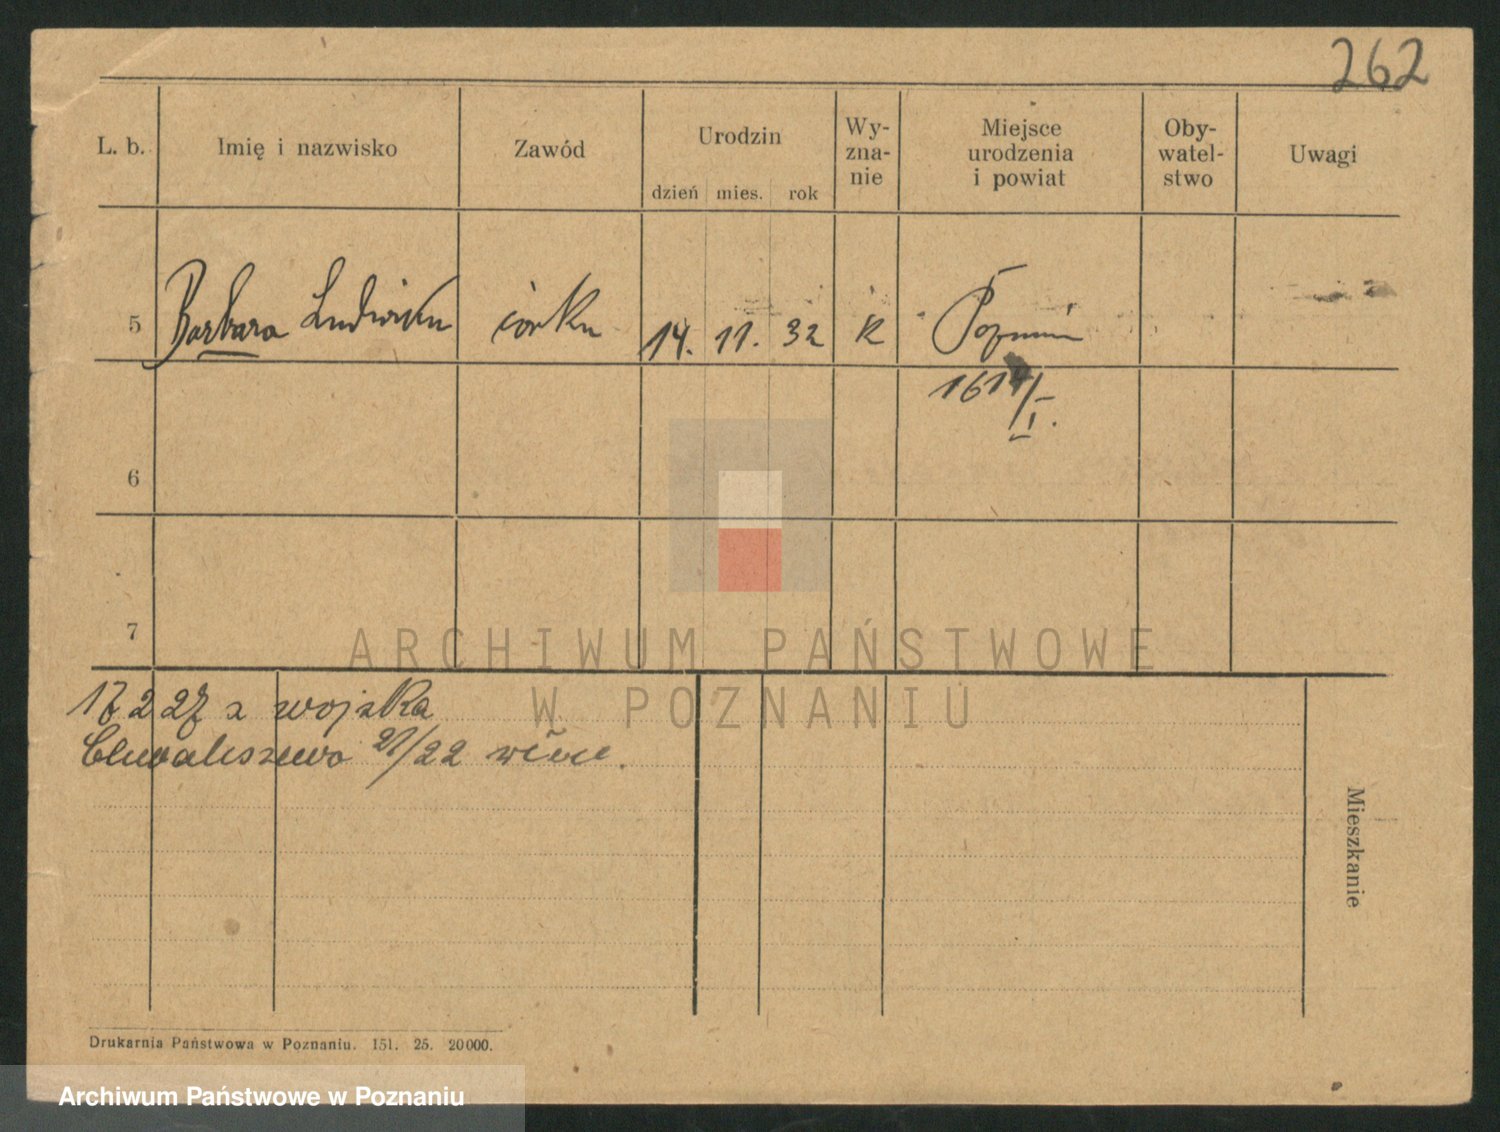 262
L. b. Imię i nazwisko Zawód Urodzin Wy-zna-nie Miejsce urodzenia i powiat Oby-watel-stwo Uwagi
dzień mies. rok
5 Barbara Ludwika córka 14. 11. 32 k Poznań
1614/I.
6
7
17 2 27 z wojska
Chwaliszewo 21/22
Mieszkanie
Drukarnia Państwowa w Poznaniu. 151. 25. 20000.
ARCHIWUM PAŃSTWOWE
W POZNANIU
Archiwum Państwowe w Poznaniu